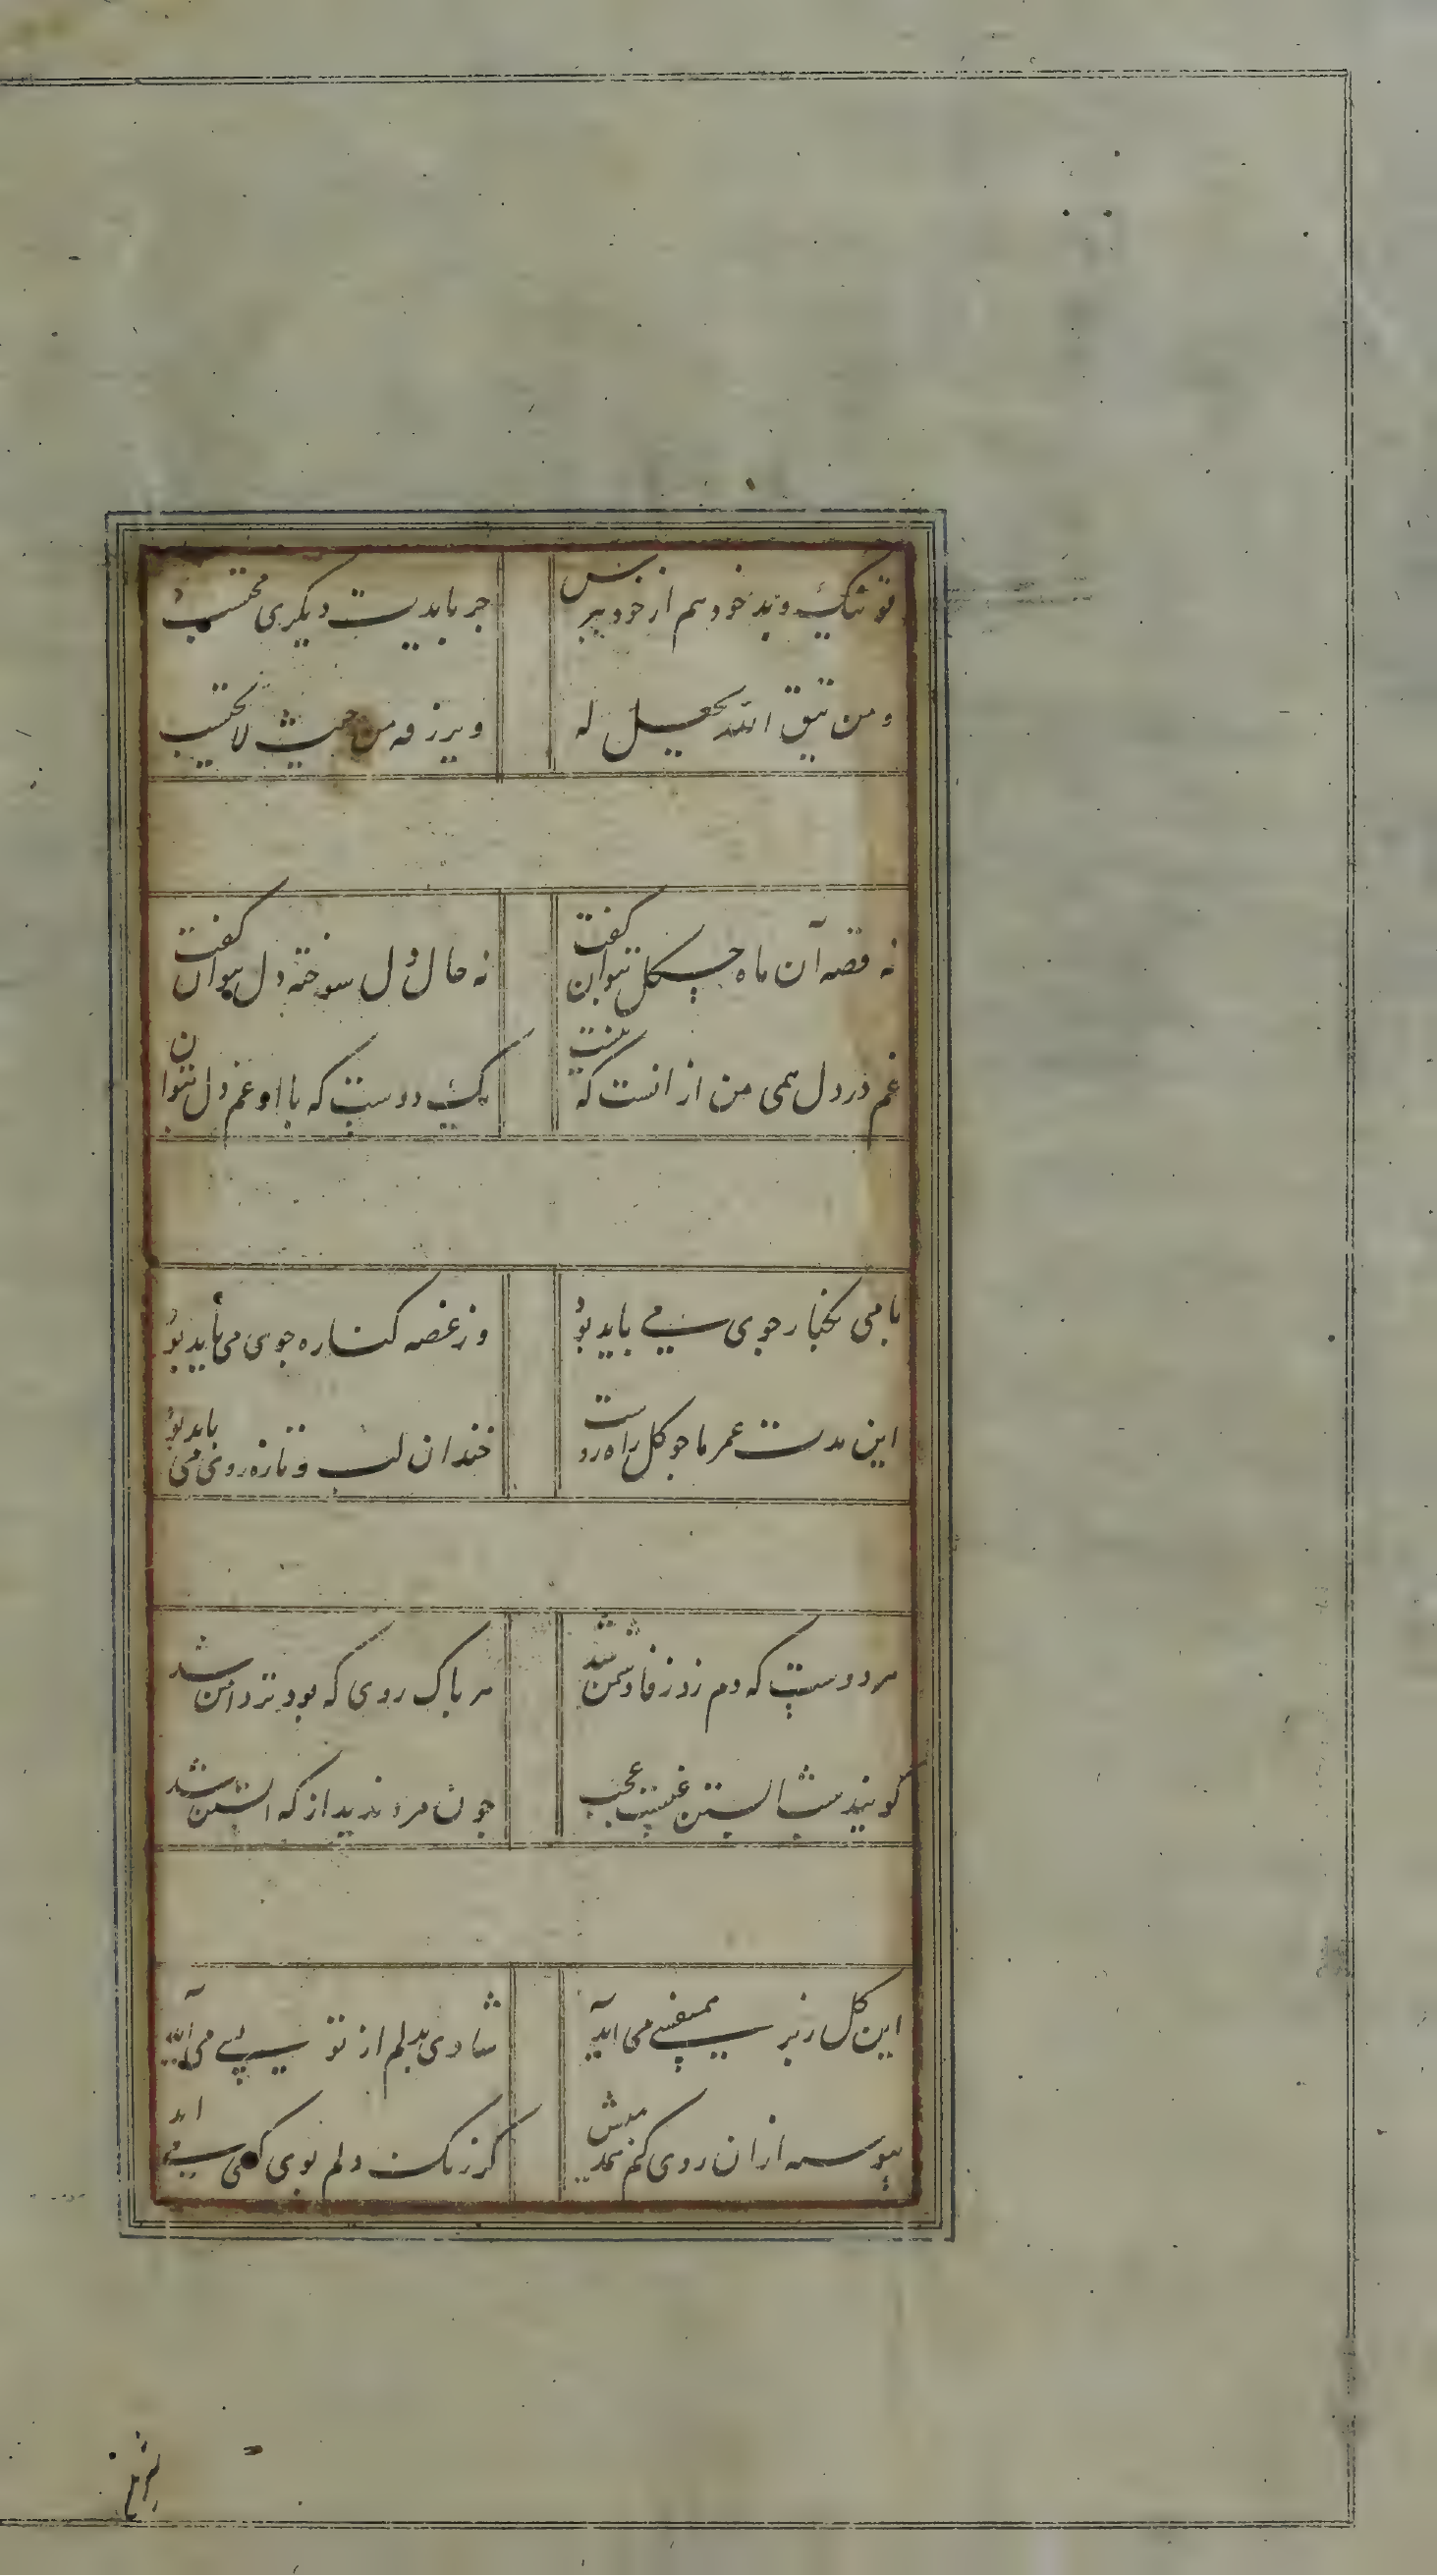 تو نیک و بد خود هم از خود بپرس
جرا بایدت دیکری محتسب
و من یتق الله یجعل له
و یرزقه من حیث لا یحتسب
نه قصه آن ماه چکل بتوان کفت
نه حال دل سوخته دل بتوان کفت
غم در دل همی من از انست که نیست
یک دوست که با او غم دل بتوان
با می بکنار جوی می باید بود
وز غصه کناره جوی می باید بود
این مدت عمر ما جو کل ده روست
خندان لب و تازه روی می باید بود
هر دوست که دم زد ز وفا دشمن شد
هر پاک روی که بود تردامن شد
کویند شب ابستن غیبست عجب
جون مرد ندید از که ابستن شد
این کل ز بر همنفسی می آید
شادی بدلم از تو بسی می آید
پیوسته ازان روی کنم همدمیش
کز رنک ویم بوی کسی می اید